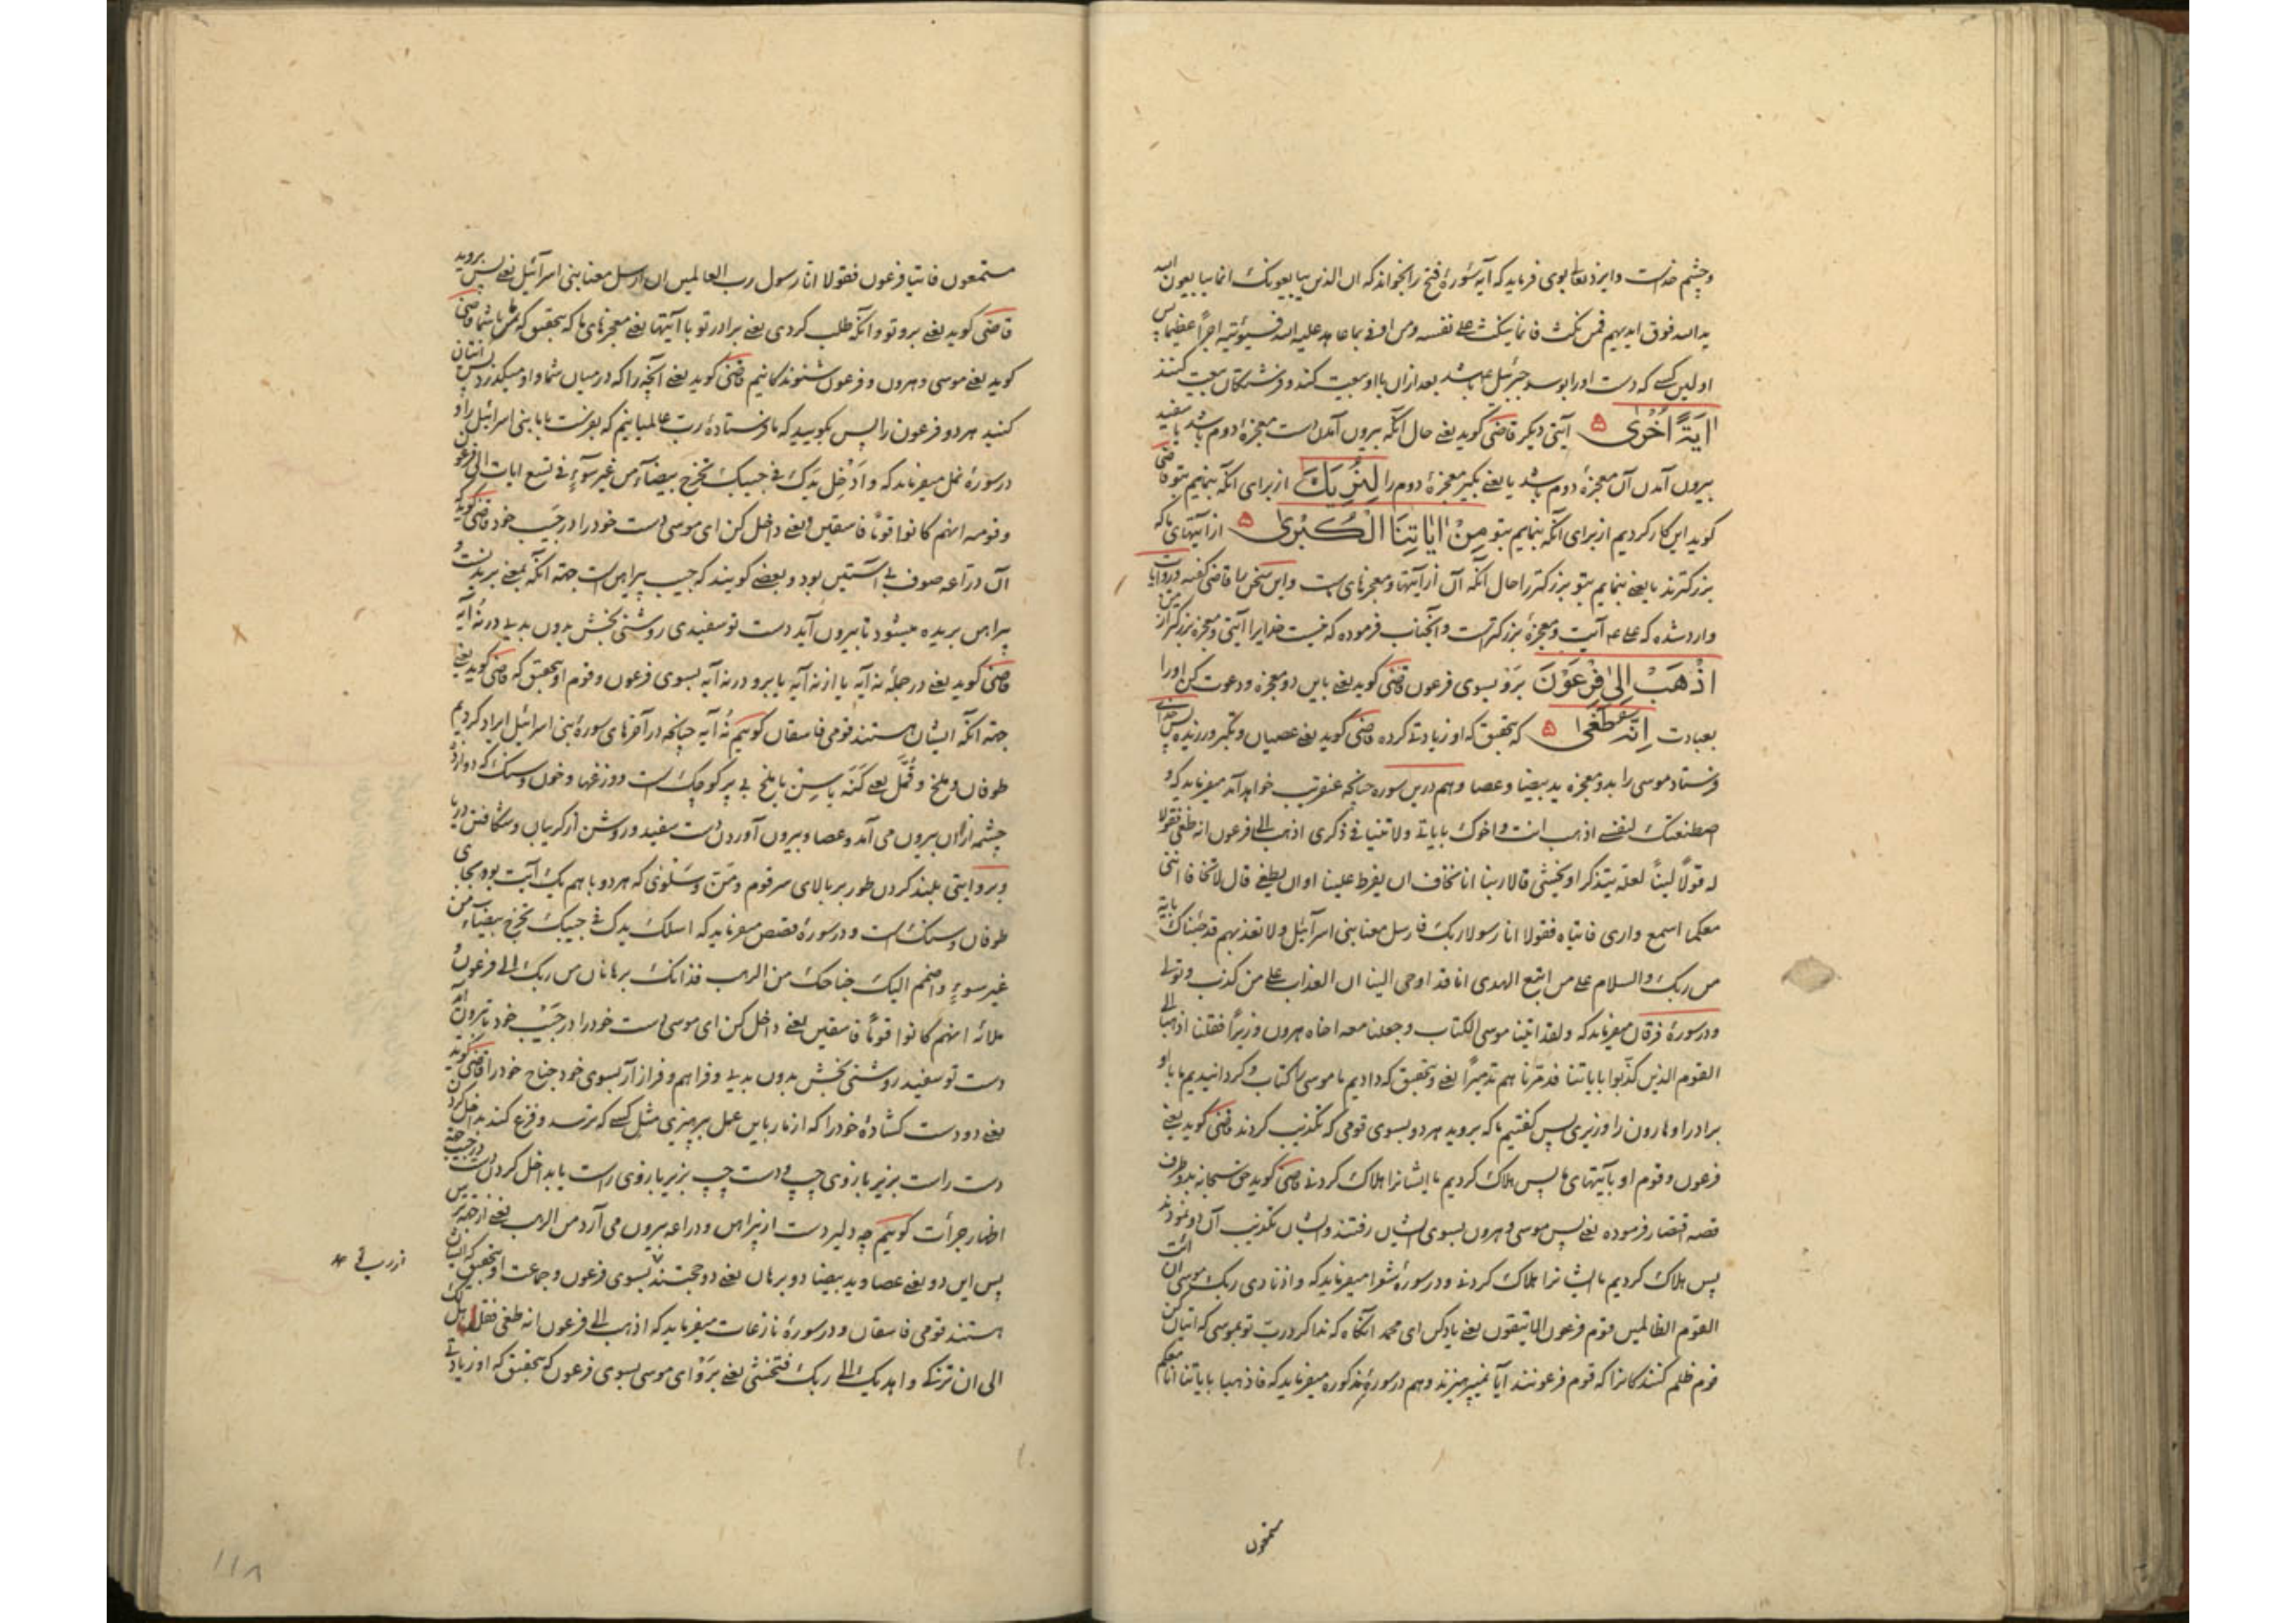 و چشم خداست و ایزد تعالی بوی فرماید که آیه سوره فتح را بخواند که ان الذین یبایعونک انما یبایعون الله
ید الله فوق ایدیهم فمن نکث فانما ینکث علی نفسه و من اوفی بما عاهد علیه الله فسیؤتیه اجراً عظیما پس
اولین کسی که دست او را بوسد جبرئیل باشد بعد از آن با او بیعت کند و فرشتگان بیعت کنند
اٰیَةً اُخْرٰی ۵ آیتی دیکر قاضی کوید یعنے حال آنکه بیرون آمدن دست معجزهٔ دوم باشد یا سفید
بیرون آمدن آن معجزهٔ دوم باشد یا یعنے بکیر معجزهٔ دوم را لِنُرِیَکَ از برای آنکه بنمایم بتو قاضی
کوید این کار کردیم از برای آنکه بنمایم بتو مِنْ اٰیَاتِنَا الْکُبْرٰی ۵ از آیتهای ما که
بزرکترند یا یعنے بنمایم بتو بزرکتر را حال آنکه آن از آیتها و معجزهای ماست و این سخن را قاضی کفته و در روایات
وارد شده که علی علیه آیت و معجزهٔ بزرکتر است و آنجناب فرموده که نیست خدایرا آیتی و معجزه بزرکتر از من
اِذْهَبْ اِلٰی فِرْعَوْنَ بَرَو بسوی فرعون قاضی کوید یعنے باین دو معجزه و دعوت کن او را
بعبادت اِنَّهُ طَغٰی ۵ که بتحقیق که او زیادتے کرده قاضی کوید یعنے عصیان و تکبر ورزیده پس خدای
فرستاد موسی را بدو معجزه ید بیضا و عصا و هم درین سوره چنانچه عنقریب خواهد آمد میفرماید که و
اصطنعتک لنفسے اذهب انت و اخوک بایاتے ولا تنیا فے ذکری اذهبا الے فرعون انه طغی فقولا
له قولاً لیناً لعله یتذکر او یخشی قالا ربنا اننا نخاف ان یفرط علینا او ان یطغی قال لا تخافا اننی
معکما اسمع و اری فاتیاه فقولا انا رسولا ربک فارسل معنا بنی اسرائیل ولا تعذبهم قد جئناک بایة
من ربک والسلام علے من اتبع الهدی انا قد اوحی الینا ان العذاب علے من کذب و تولے
و در سورهٔ فرقان میفرماید که ولقد اتینا موسی الکتاب و جعلنا معه اخاه هرون وزیراً فقلنا اذهبا الے
القوم الذین کذّبوا بایاتنا فدمّرناهم تدمیراً یعنے و بتحقیق که دادیم ما موسی را کتاب و کردانیدیم ما با او
برادر او هارون را وزیری پس کفتیم ما که بروید هر دو بسوی قومی که تکذیب کردند قاضی کوید یعنے
فرعون و قوم او بآیتهای ما پس هلاک کردیم ما ایشانرا هلاک کردنے قاضی کوید حق سبحانه بدو طرف
قصه اقتصار فرموده یعنے پس موسی و هرون بسوی ایشان رفتند و ایشان تکذیب آن دو نمودند
پس هلاک کردیم ما ایشانرا هلاک کردنے و در سورهٔ شعرا میفرماید که و اذ نادی ربک موسی ان ائت
القوم الظالمین قوم فرعون الا یتقون یعنے یاد کن ای محمد آنکاه که ندا کرد رب تو بموسی که اتیان کن
قوم ظلم کنندکانرا که قوم فرعونند آیا نمیپرهیزند و هم در سورهٔ مذکوره میفرماید که فاذهبا بایاتنا انا معکم
مستمعون
مستمعون فاتیا فرعون فقولا انا رسول رب العالمین ان ارسل معنا بنی اسرآئیل یعنے پس بروید
قاضی کوید یعنے برو تو و آنکه طلب کردی یعنے برادر تو با آیتها یعنے معجزهای ما که بتحقیق که من با شما قاضی
کوید یعنے موسی و هرون و فرعون شنوندکانیم قاضی کوید یعنے آنچه را که در میان شما و او میکذرد پس اتیان
کنید هر دو فرعون را پس بکویید که ما فرستادهٔ رب عالمیانیم که بفرست با ما بنی اسرائیل را و
در سورهٔ نمل میفرماید که و ادخل یدک فے جیبک تخرج بیضآء من غیر سوٓء فے تسع ایات الی فرعون
و قومه انهم کانوا قوماً فاسقین یعنے داخل کن ای موسی دست خود را در جیب خود قاضی کوید
آن دراعه صوف بے آستین بود و بعضے کویند که جیب پیراهن است جهة آنکه بمعنے بریدنست و
پیراهن بریده میشود تا بیرون آید دست تو سفیدی روشنی بخش بدون بدیے در نه آیه
قاضی کوید یعنے در جملهٔ نه آیه یا از نه آیه یا برو در نه آیه بسوی فرعون و قوم او بتحقیق که قاضی کوید یعنے
جهة آنکه ایشان هستند قومی فاسقان کوییم نُه آیه چنانچه در آخرهای سورهٔ بنی اسرائیل ایراد کردیم
طوفان و ملخ و قُمَّل یعنے کَنَه یا سِن یا ملخ بے پر کوچک است و وزغها و خون و سنک که دوازده
چشمه از آن بیرون می آمد و عصا و بیرون آوردن دست سفید و روشن از کریبان و شکافتن دریا
و بروایتی بلند کردن طور بر بالای سر قوم و مَنّ و سَلوٰی که هر دو با هم یک آیت بود بجای
طوفان و سنک است و در سورهٔ قصص میفرماید که اسلک یدک فے جیبک تخرج بیضآء من
غیر سوء و اضمم الیک جناحک من الرهب فذانک برهانان من ربک الے فرعون و
ملائه انهم کانوا قوماً فاسقین یعنے داخل کن ای موسی دست خود را در جَیْب خود تا بیرون آید
دست تو سفید روشنی بخش بدون بدیے و فراهم و فراز آر بسوی خود جناح خود را قاضی کوید
یعنے دو دست کشادهٔ خود را که از مار باین عمل بپرهیزی مثل کسے که ترسد و فزع کند بداخل کردن
دست راست بزیر بازوی چپ و دست چپ بزیر بازوی راست یا بداخل کردن دست در جیب جهة
اظهار جرأت کوییم چه دلیر دست از پیراهن و دراعه بیرون می آرد من الرهب یعنے از جهة ترس
پس این دو یعنے عصا و ید بیضا دو برهان یعنے دو حجتند بسوی فرعون و جماعت او بتحقیق که ایشان
از رب تو
هستند قومی فاسقان و در سورهٔ نازعات میفرماید که اذهب الے فرعون انه طغی فقل هل لک
الی ان تزکے و اهدیک الے ربک فتخشی یعنے بَرَو ای موسی بسوی فرعون که بتحقیق که او زیادتے
۱۱۸